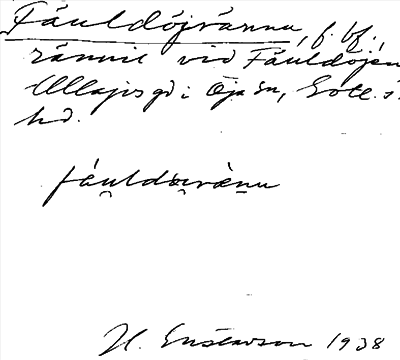 Fáuldöjrännu, f. bf.,
rännil vid Fáuldöjen
Ullajvs gd i Öja sn, Gotl. s.
hd.
fáuldöi̯rænu
H. Gustavson 1938